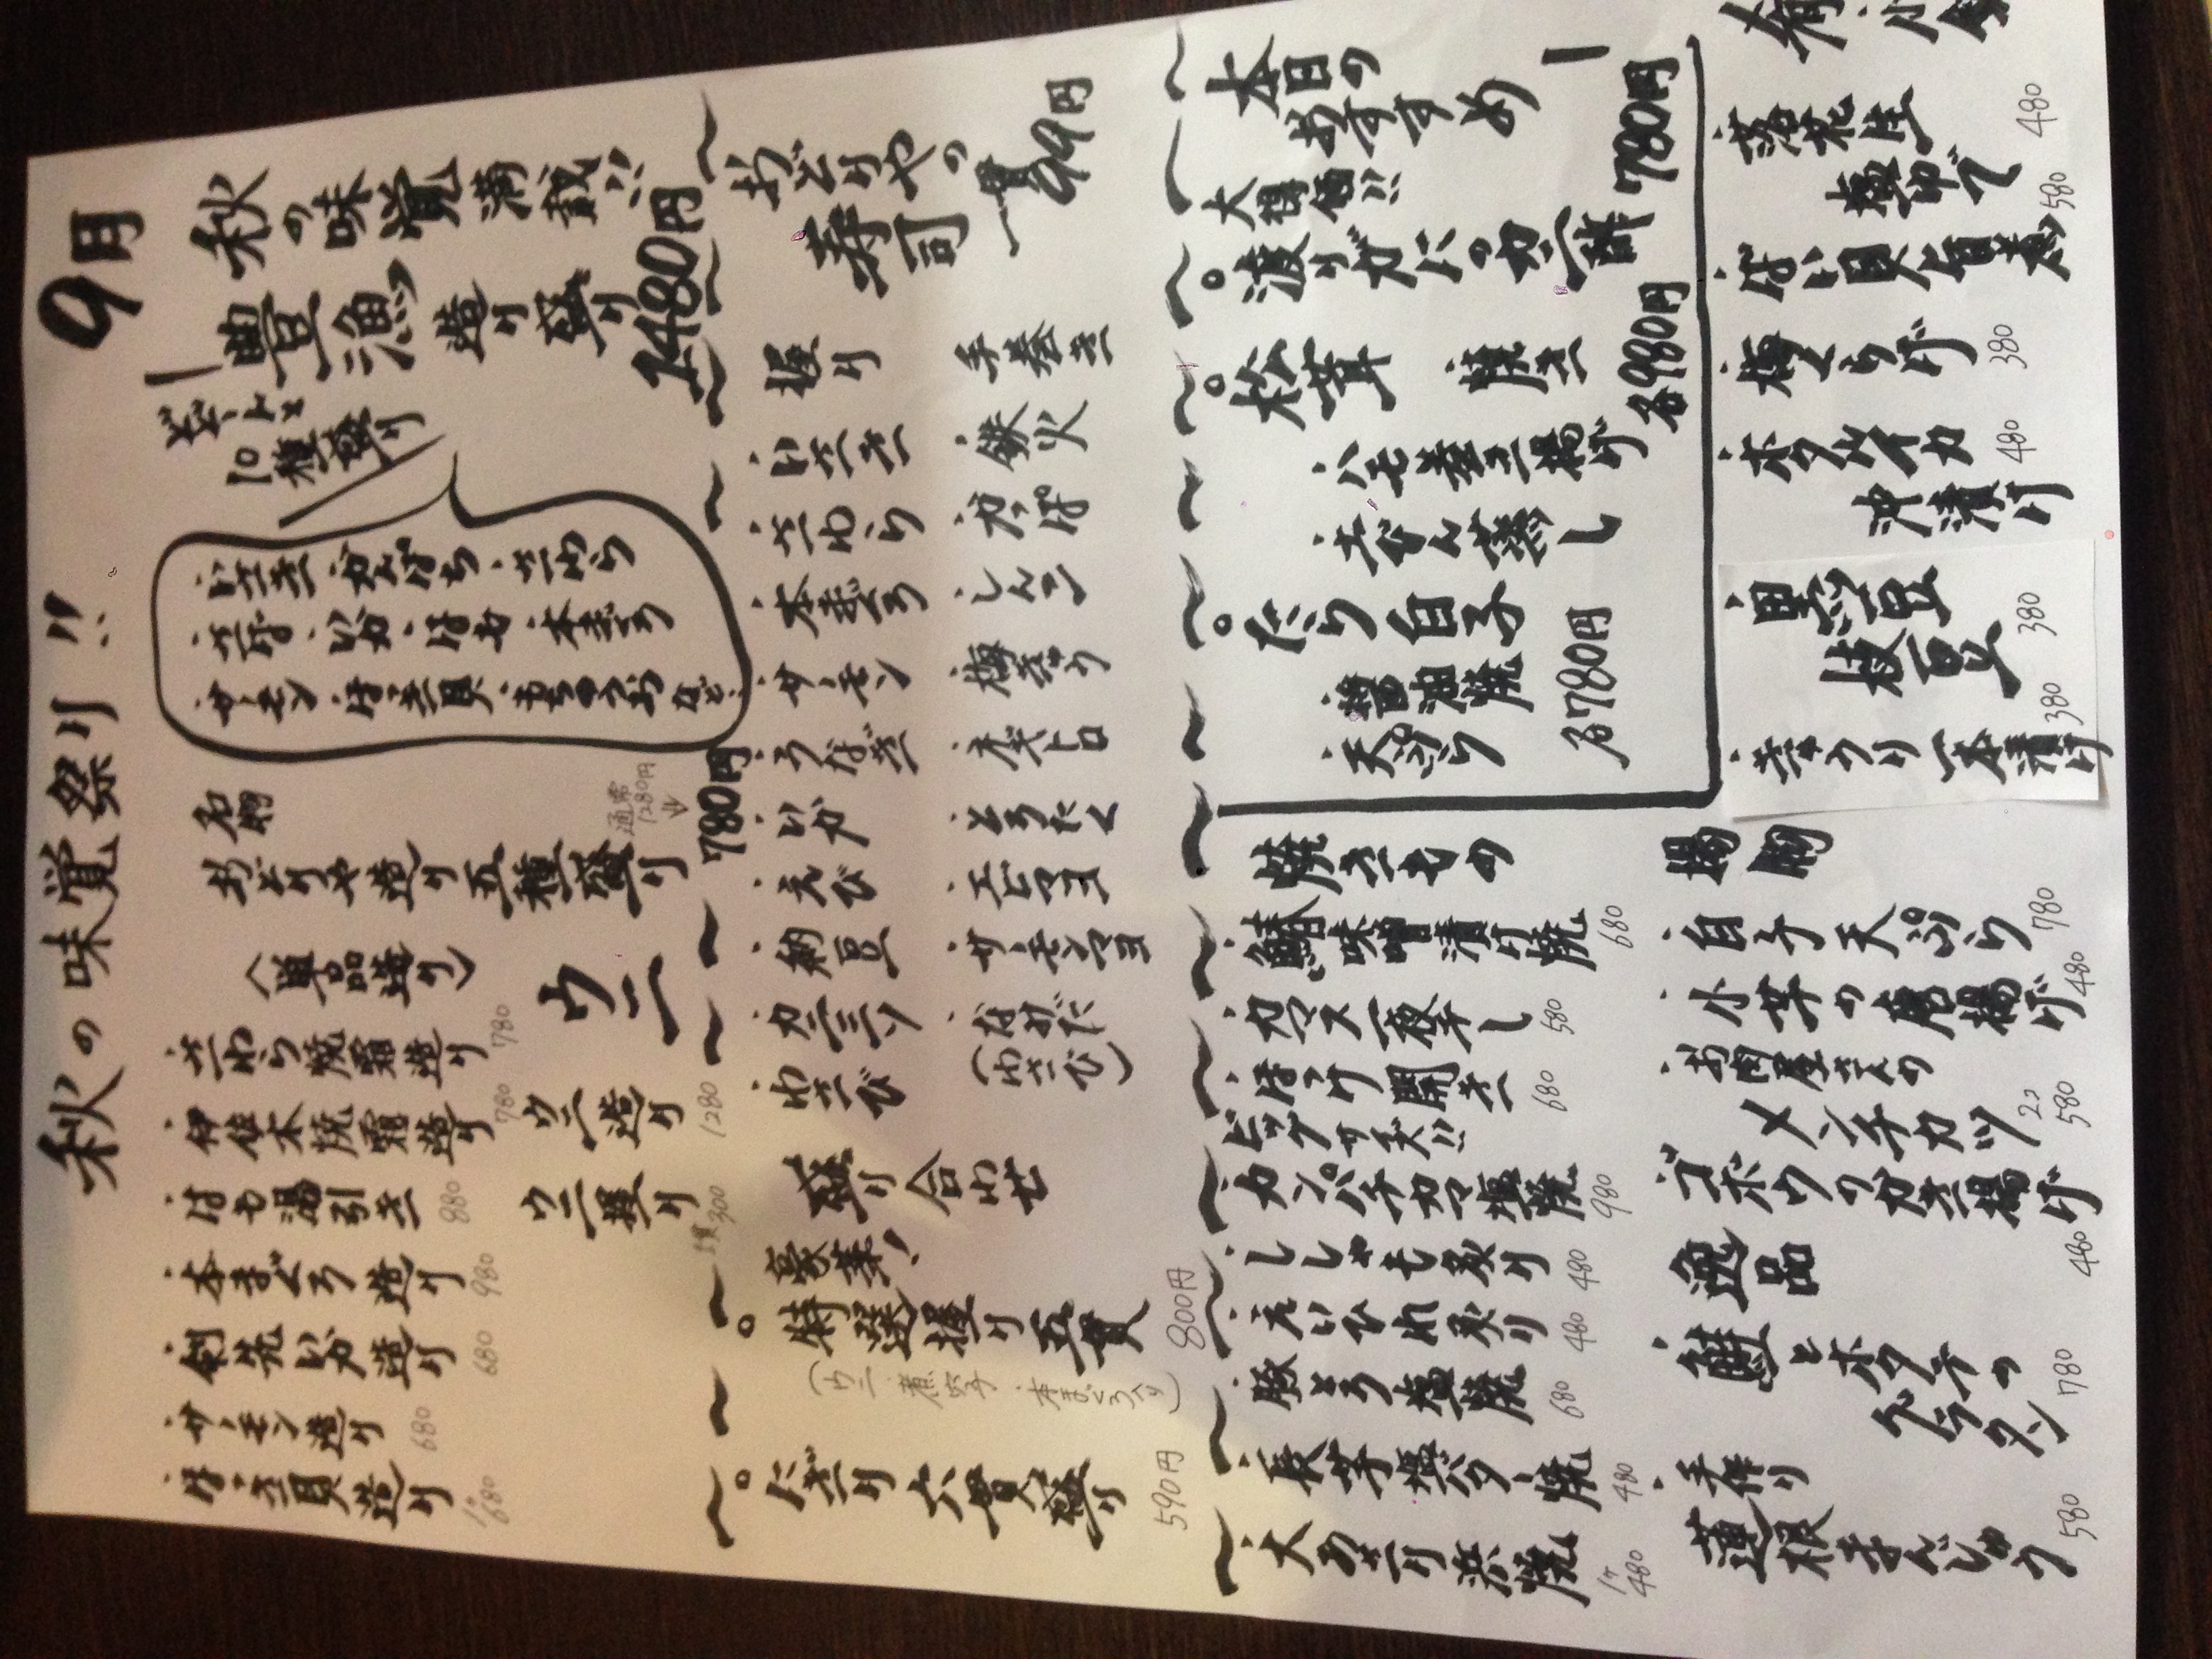 9月
秋の味覚祭り!!
秋の味覚満載!!
豊漁造り盛り
1480円
どどーんと
10種盛り
・いさき・かんぱち・さわら
・さんま・いか・はも・本まぐろ
・サーモン・ほっき貝・もちうおなど…
名物
おどりや造り五種盛り
通常
1280円
780円
〈単品造り〉
・さわら焼霜造り 780
・伊佐木焼霜造り 780
・はも湯引き 880
・本まぐろ造り 980
・剣先いか造り 680
・サーモン造り 680
・ほっき貝造り 1ケ 680
ウニ
・ウニ造り 1280
・ウニ握り 1貫 300
おどりやの
寿司
一貫99円
握り
・いさき
・さわら
・本まぐろ
・サーモン
・うなぎ
・いか
・えび
・納豆
・カニミソ
・わさび
手巻き
・鉄火
・かっぱ
・しんこ
・梅きゅう
・ネギトロ
・とろたく
・エビマヨ
・サーモンマヨ
・なみだ
(わさび)
盛り合わせ
豪華!
○特選握り五貫 800円
(ウニ・煮穴子・本まぐろ入り)
○にぎり六貫盛り 590円
本日の
おすすめ
大得価!!
○渡りガニのカニ酢 780円
○松茸 焼き
・ハモ松茸天揚げ
・土びん蒸し
各980円
○たら白子
・醤油焼
・天ぷら
各780円
焼きもの
・鰆味噌漬け焼 680
・カマス一夜干し 580
・ほっけ開き 680
ビッグサイズ!!
・カンパチカマ塩焼 980
・ししゃも炙り 480
・えいひれ炙り 480
・豚とろ塩焼 680
・長芋塩バター焼 480
・大あさり浜焼 1ケ 480
・落花生
塩ゆで 480
・ばい貝旨煮 580
・梅くらげ 380
・ホタルイカ
沖漬け 480
・黒豆
枝豆 380
・きゅうり一本漬け 380
揚物
・白子天ぷら 780
・小芋の唐揚げ 480
・お肉屋さんの
メンチカツ 2コ 580
・ゴボウのかき揚げ 480
逸品
・鮭とホタテの
グラタン 780
・手作り
蓮根まんじゅう 580